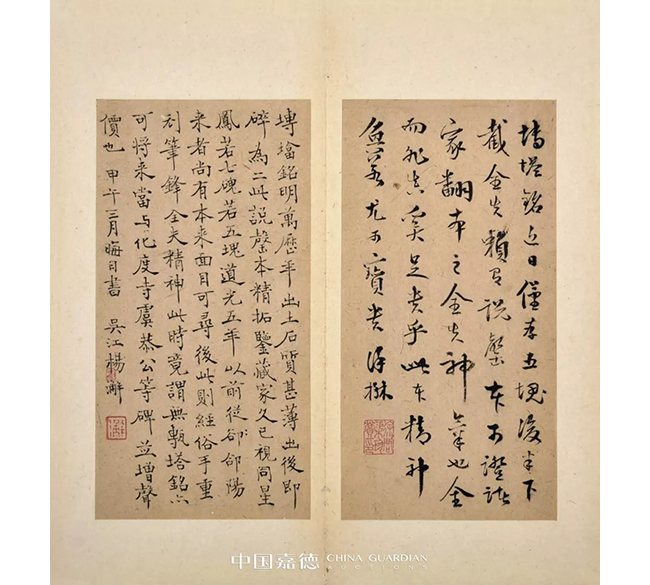 塼塔銘近日僅存五塊後半下
截全失賴有說罄本可證諸
家翻本之全失神氣也全
而非真奚足貴乎此本精神
尤可寶貴 徐楙
塼塔銘明萬歷年出土石質甚薄出後即
碎為二此說罄本精拓鑒藏家久已視同星
鳳若七塊若五塊道光五年以前從卻郃陽
来者尚有本来面目可尋後此則經俗手重
刻筆鋒全失精神此時竟謂無甎塔銘亦
可将来當与化度寺虞恭公等碑並增聲
價也 甲午三月晦日書 吳江楊澥
中国嘉德 CHINA GUARDIAN
AUCTIONS